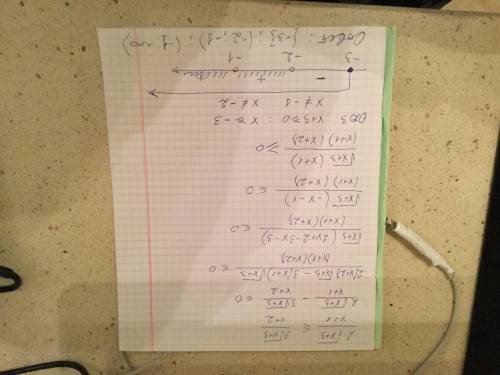 2√x+3 / x+1 ≤ 3√x+3 / x+2
2√x+3 / x+1 − 3√x+3 / x+2 ≤ 0
2(x+2)√x+3 − 3(x+1)√x+3 / (x+1)(x+2) ≤ 0
√x+3 (2x+2−3x−3) / (x+1)(x+2) ≤ 0
√x+3 (−x−1) / (x+1)(x+2) ≤ 0
√x+3 (x+1) / (x+1)(x+2) ≥ 0
ОДЗ: x+3≥0 : x ≥ −3
x ≠ −1 x ≠ −2
−3 −2 −1
−
Ответ: {−3} ; (−2; −1) ; (−1; +∞)